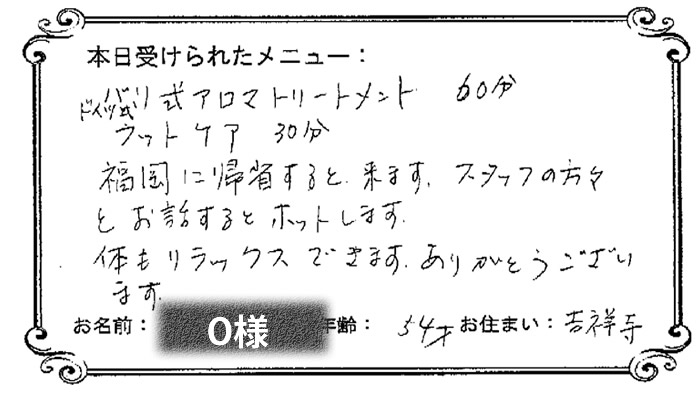 本日受けられたメニュー：
バリ式アロマトリートメント 60分
ドイツ式
フットケア 30分
福岡に帰省すると、来ます。スタッフの方々
とお話するとホットします。
体もリラックスできます。ありがとうござい
ます。
お名前： O様 年齢： 54才 お住まい： 吉祥寺